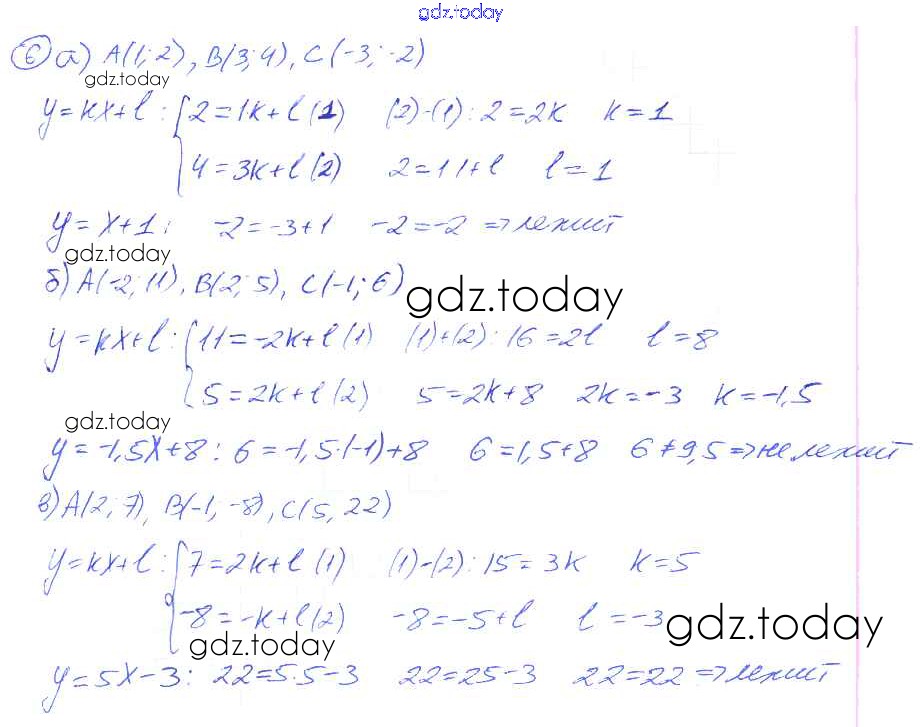 gdz.today
6 а) A(1; 2), B(3; 4), C(-3; -2)
gdz.today
y=kx+l: { 2=1k+l (1) (2)-(1): 2=2k k=1
4=3k+l (2) 2=1·1+l l=1
y=x+1: -2=-3+1 -2=-2 => лежит
gdz.today
б) A(-2; 11), B(2; 5), C(-1; 6)
gdz.today
y=kx+l: { 11=-2k+l (1) (1)+(2): 16=2l l=8
5=2k+l (2) 5=2k+8 2k=-3 k=-1,5
gdz.today
y=-1,5x+8: 6=-1,5·(-1)+8 6=1,5+8 6≠9,5 => не лежит
в) A(2; 7), B(-1, -8), C(5, 22)
y=kx+l: { 7=2k+l (1) (1)-(2): 15=3k k=5
-8=-k+l (2) -8=-5+l l=-3
gdz.today
gdz.today
y=5x-3: 22=5·5-3 22=25-3 22=22 => лежит